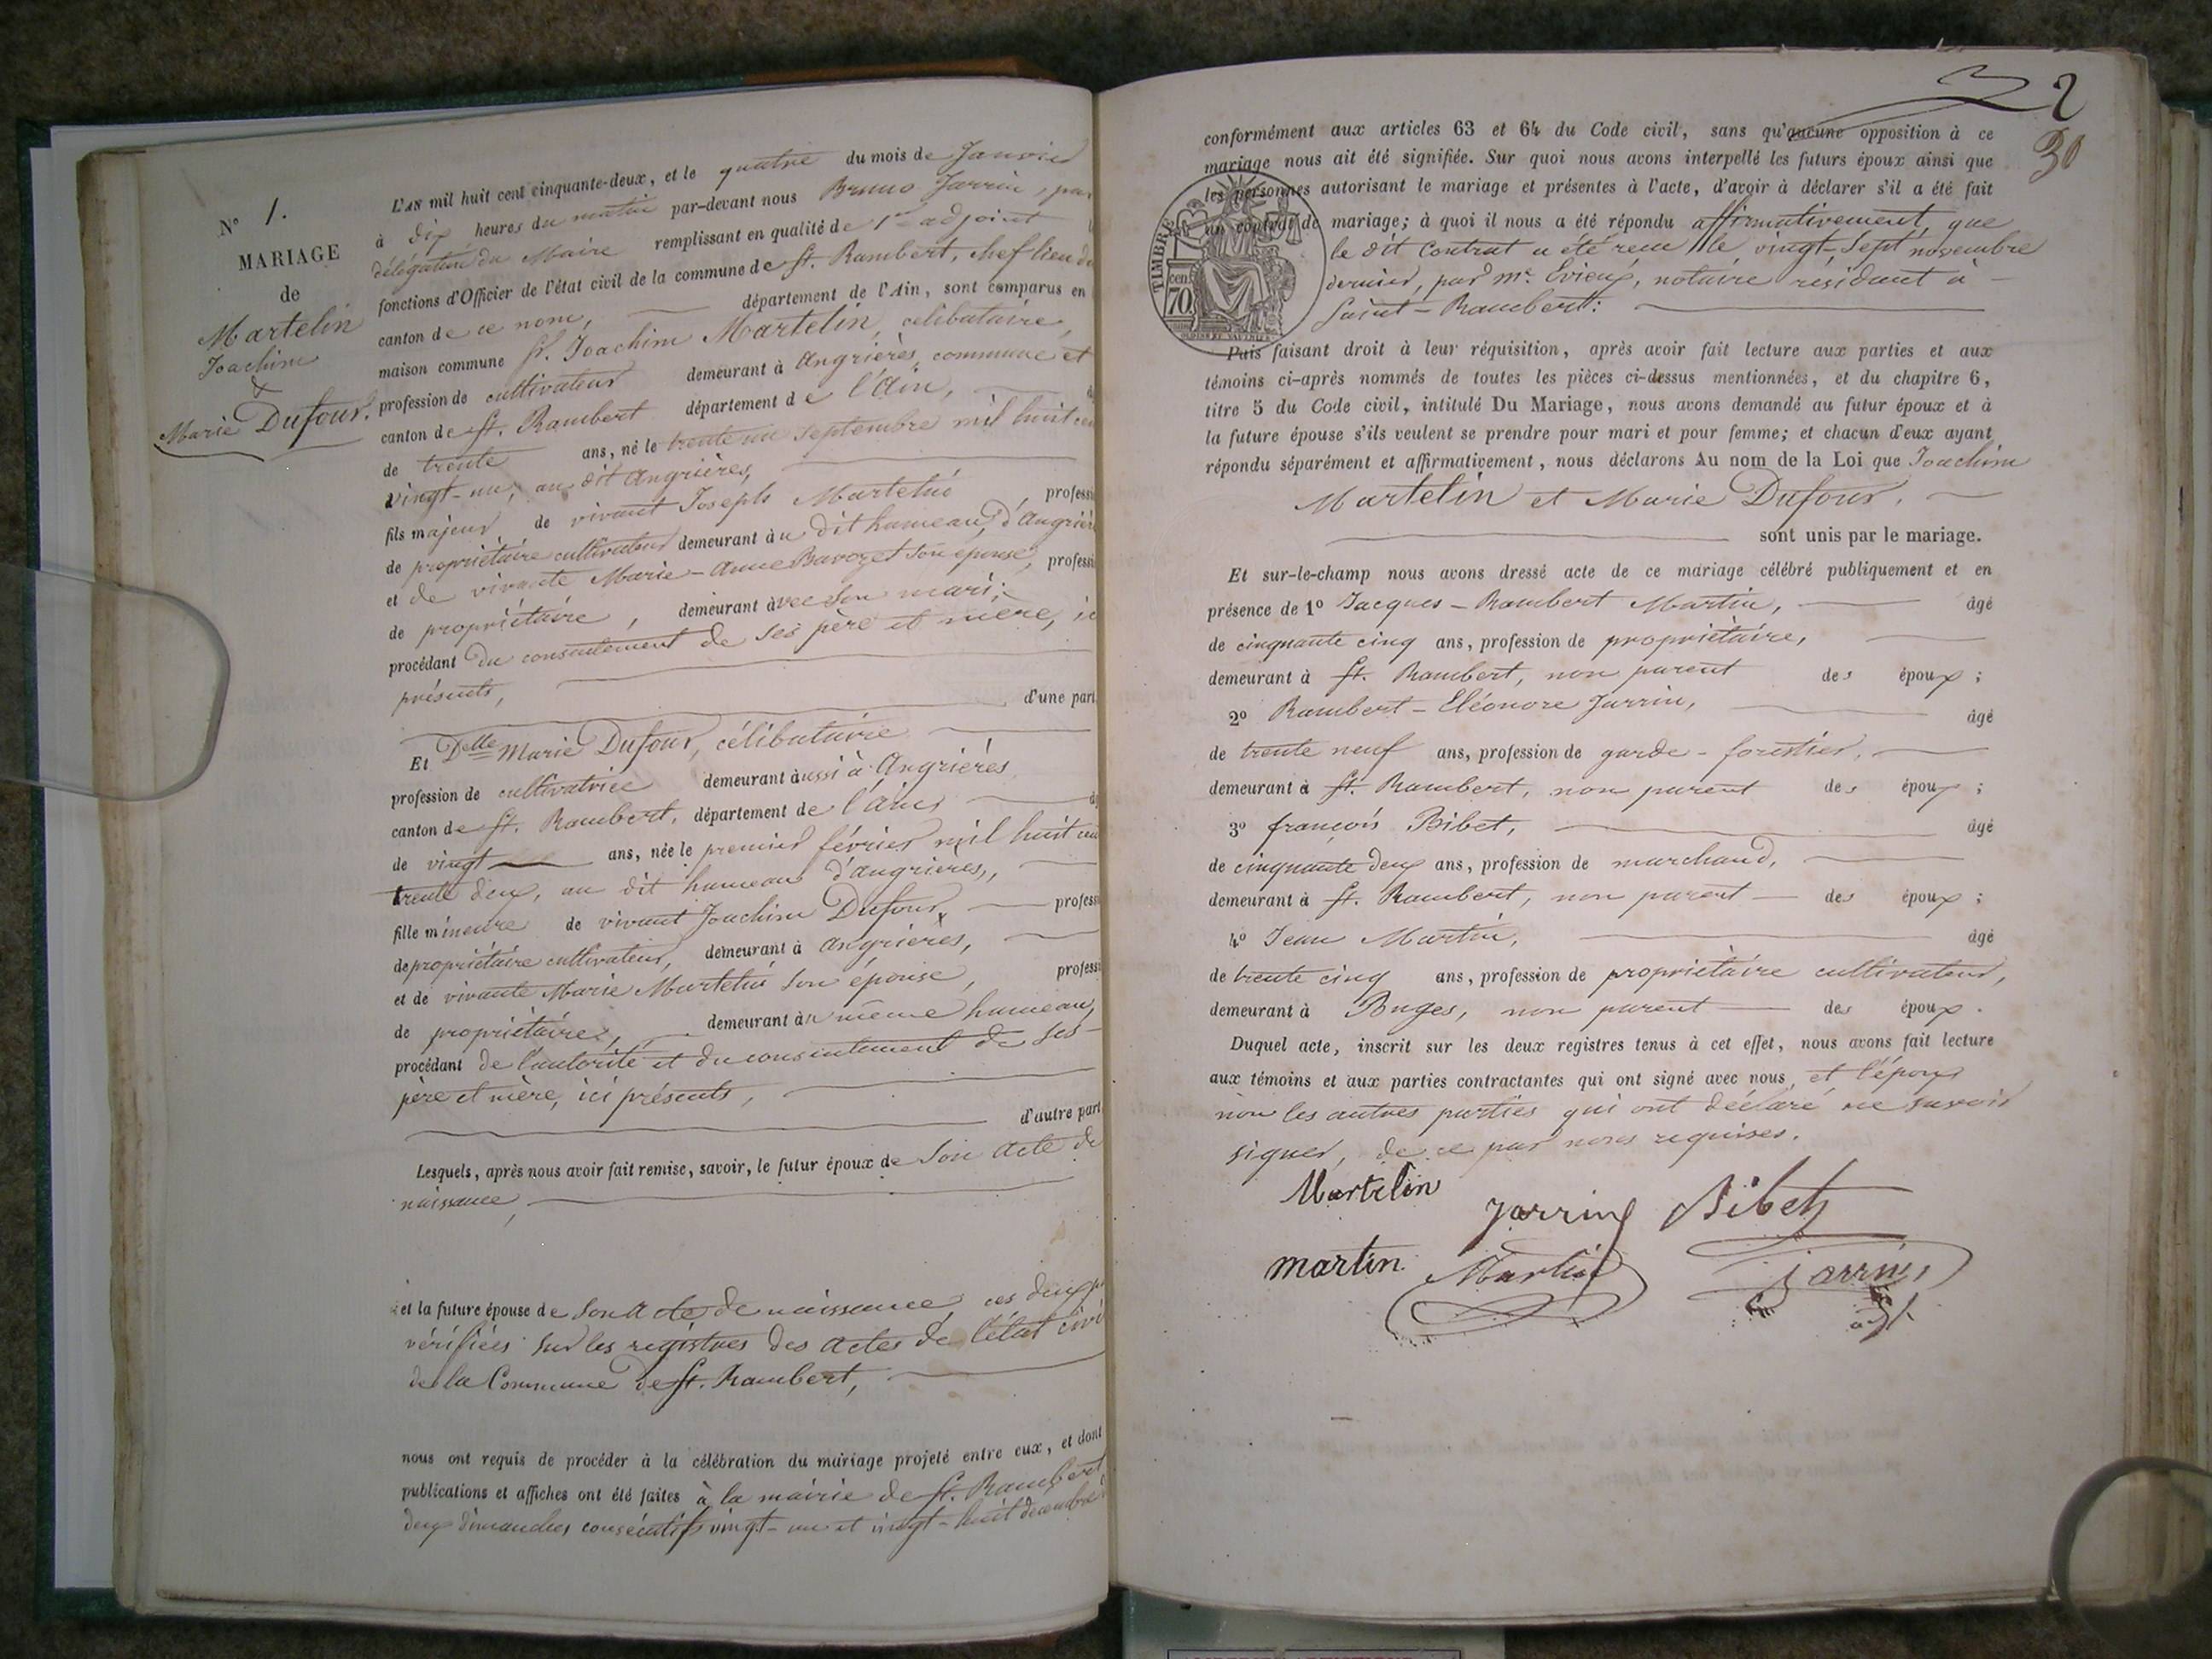 N° 1.
MARIAGE
de
Martelin
Joachim
&
Marie Dufour.
L'AN mil huit cent cinquante-deux, et le quatre du mois de Janvier
à dix heures du matin par-devant nous Bruno Jarrin, par
délégation du Maire remplissant en qualité de 1er adjoint
fonctions d'Officier de l'état civil de la commune de St. Rambert, chef lieu du
canton de ce nom, département de l'Ain, sont comparus en
maison commune Sr. Joachim Martelin, célibataire,
profession de cultivateur demeurant à Angrières, commune et
canton de St. Rambert département de l'Ain,
de trente ans, né le trente un septembre mil huit cen
vingt-un, au dit Angrières,
fils majeur de vivant Joseph Martelin professi
de propriétaire cultivateur demeurant au dit hameau d'Angrièr
et de vivante Marie-Anne Bavozet son épouse, professi
de propriétaire, demeurant avec son mari;
procédant du consentement de ses père et mère, ic
présents,
d'une part
Et Delle Marie Dufour, célibataire
profession de cultivatrice demeurant aussi à Angrières
canton de St. Rambert, département de l'Ain,
de vingt ans, née le premier février mil huit cen
trente deux, au dit hameau d'Angrières,
fille mineure de vivant Joachim Dufour, professi
de propriétaire cultivateur, demeurant à Angrières,
et de vivante Marie Martelin son épouse, professi
de propriétaire, demeurant au même hameau,
procédant de l'autorité et du consentement de ses
père et mère, ici présents,
d'autre part
Lesquels, après nous avoir fait remise, savoir, le futur époux de son acte de
naissance,
et la future épouse de son acte de naissance, ces deux p
vérifiées sur les registres des actes de l'état civi
de la Commune de St. Rambert,
nous ont requis de procéder à la célébration du mariage projeté entre eux, et dont
publications et affiches ont été faites à la mairie de St. Rambert
deux dimanches consécutifs vingt-un et vingt-huit décembre
2
30
conformément aux articles 63 et 64 du Code civil, sans qu'aucune opposition à ce
mariage nous ait été signifiée. Sur quoi nous avons interpellé les futurs époux ainsi que
les personnes autorisant le mariage et présentes à l'acte, d'avoir à déclarer s'il a été fait
un contrat de mariage; à quoi il nous a été répondu affirmativement, que
TIMBRE
cen
70
le dit contrat a été reçu le vingt-sept novembre
dernier, par mr. Evieux, notaire résidant à
Saint-Rambert:
Puis faisant droit à leur réquisition, après avoir fait lecture aux parties et aux
témoins ci-après nommés de toutes les pièces ci-dessus mentionnées, et du chapitre 6,
titre 5 du Code civil, intitulé Du Mariage, nous avons demandé au futur époux et à
la future épouse s'ils veulent se prendre pour mari et pour femme; et chacun d'eux ayant
répondu séparément et affirmativement, nous déclarons Au nom de la Loi que Joachim
Martelin et Marie Dufour.
sont unis par le mariage.
Et sur-le-champ nous avons dressé acte de ce mariage célébré publiquement et en
présence de 1° Jacques-Rambert Martin, âgé
de cinquante cinq ans, profession de propriétaire,
demeurant à St. Rambert, non parent des époux;
2° Rambert-Eléonore Jarrin, âgé
de trente neuf ans, profession de garde-forestier,
demeurant à St. Rambert, non parent des époux;
3° françois Bibet, âgé
de cinquante deux ans, profession de marchand,
demeurant à St. Rambert, non parent des époux;
4° Jean Martin, âgé
de trente cinq ans, profession de propriétaire cultivateur,
demeurant à Buges, non parent des époux.
Duquel acte, inscrit sur les deux registres tenus à cet effet, nous avons fait lecture
aux témoins et aux parties contractantes qui ont signé avec nous, et l'époux
non les autres parties qui ont déclaré ne savoir
signer, de ce par nous requises.
Martelin
Jarrin Bibet
martin. Martin Jarrin,